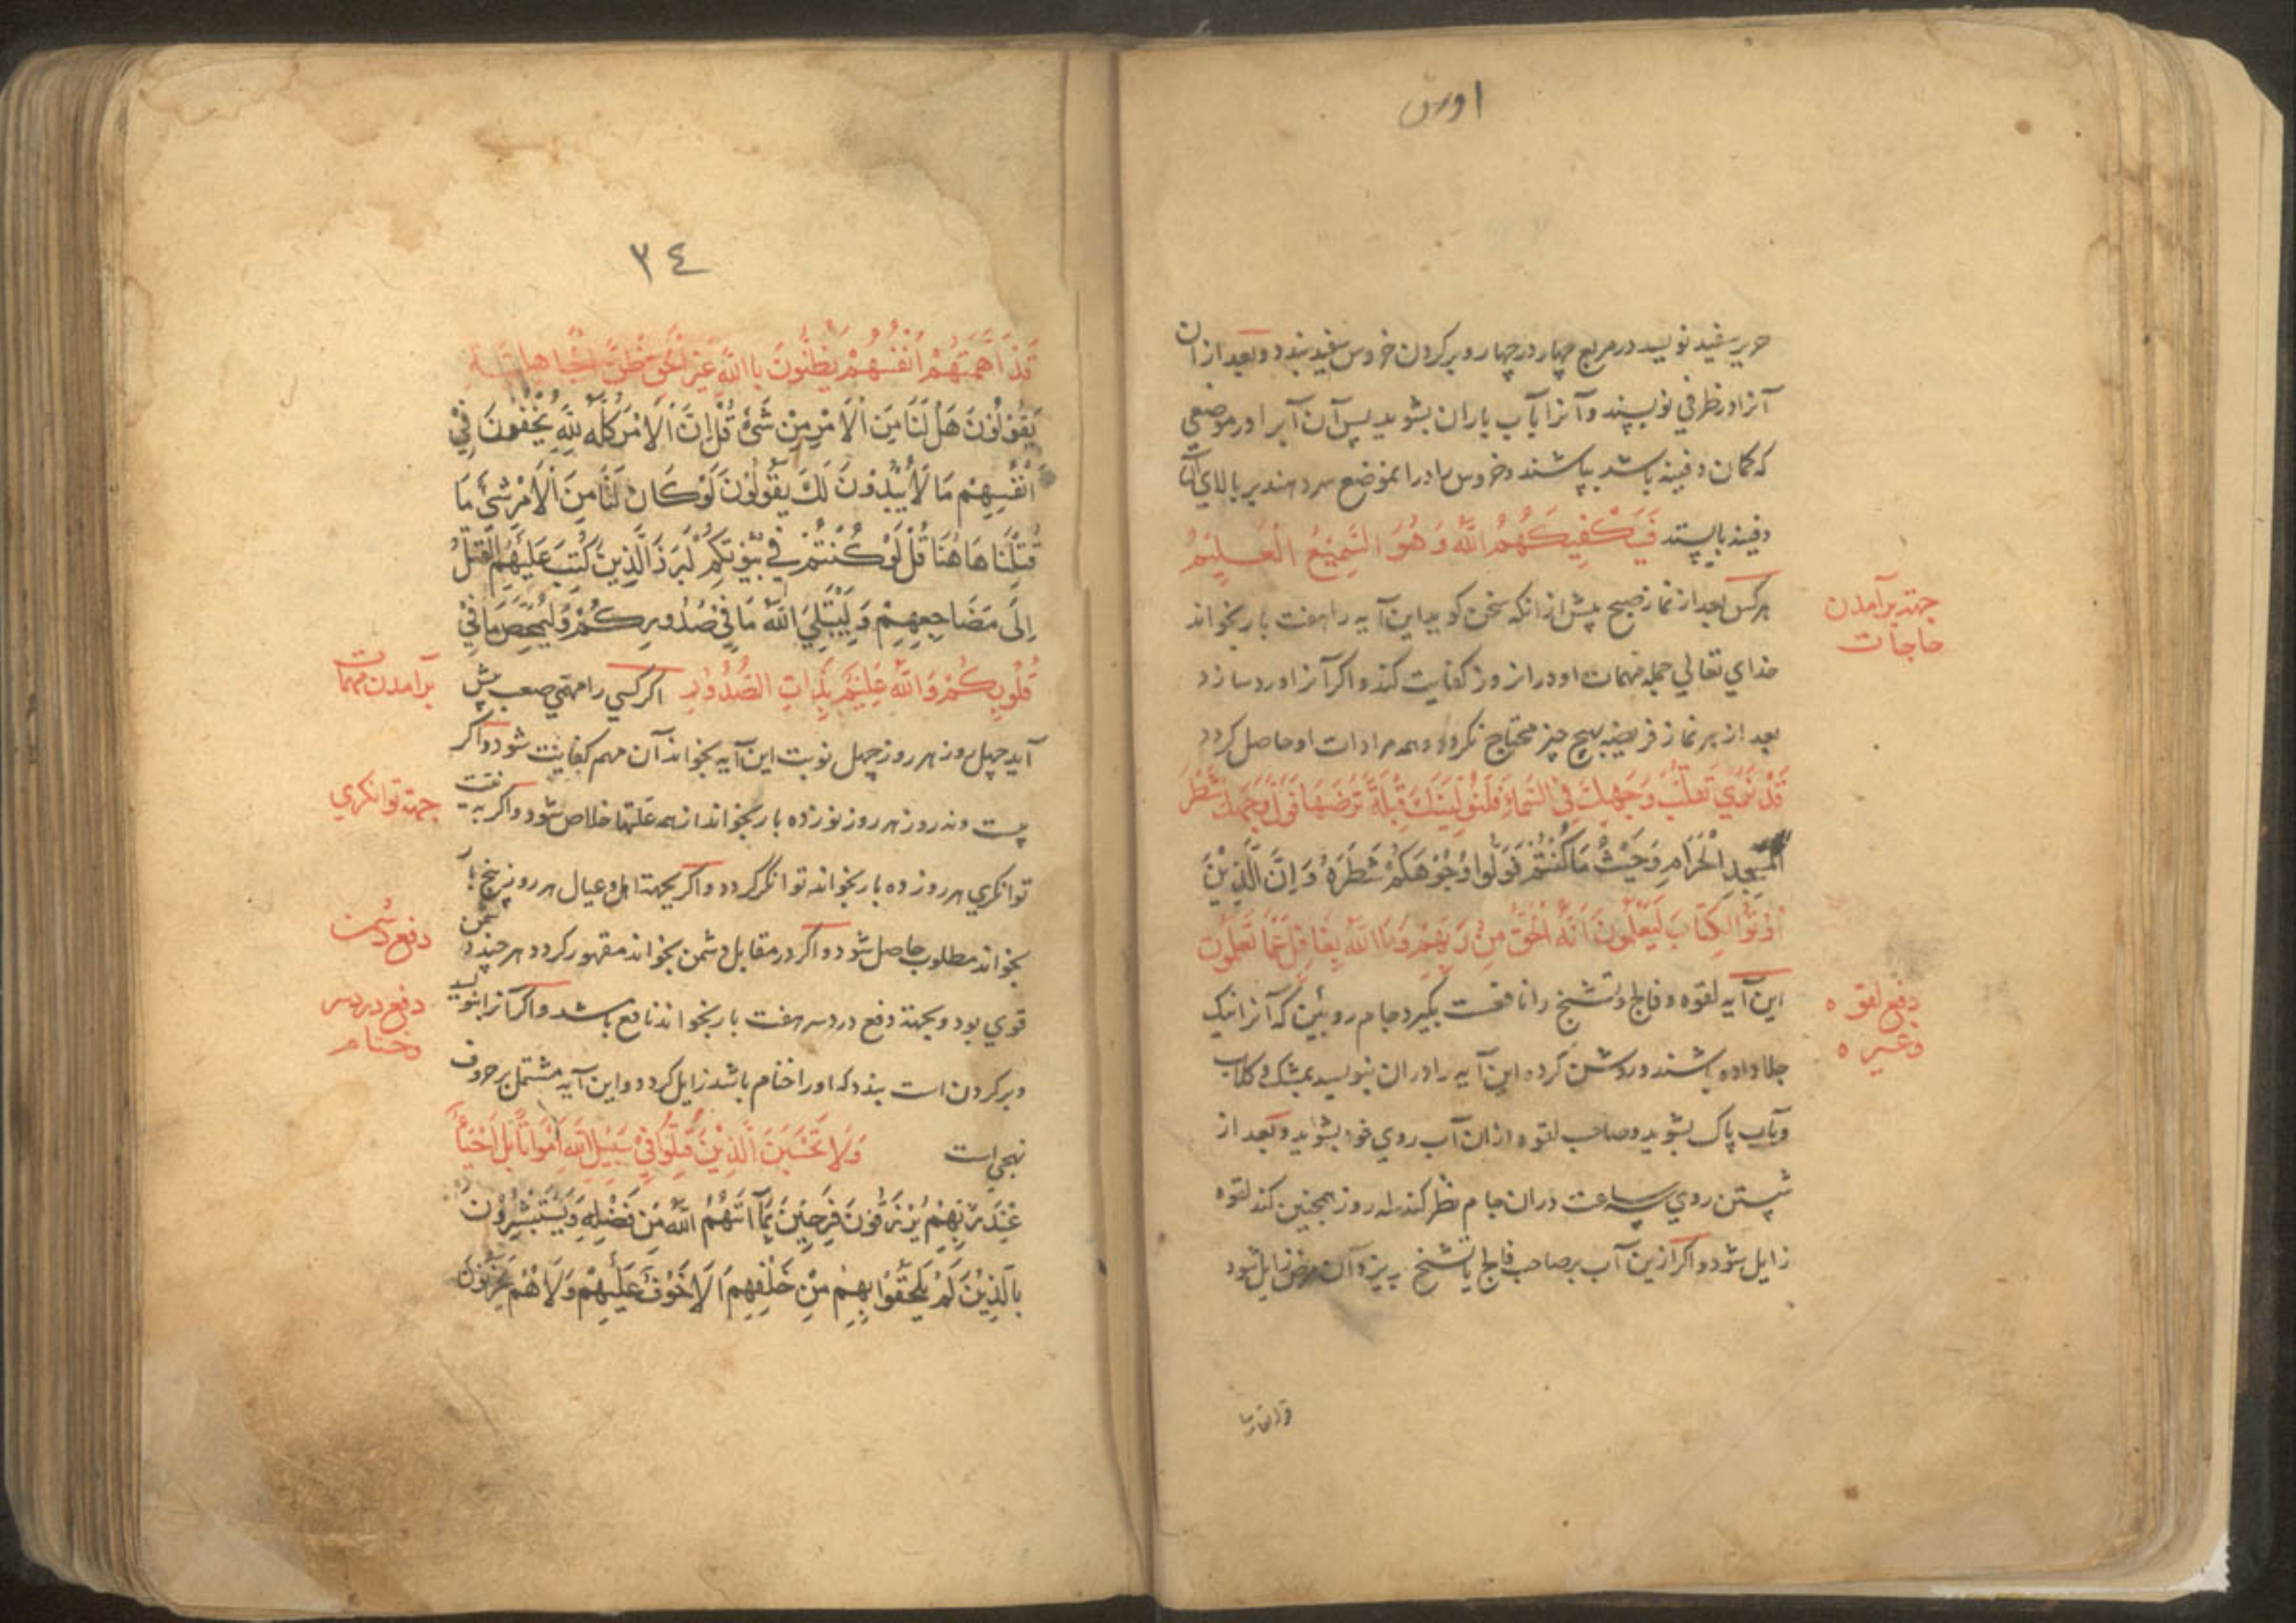 حریر سفید نویسد در مربع چهار در چهار و بر کردن خروس سفید بندد و بعد از ان
آنرا در ظرفی نویسند و آنرا بآب باران بشویند پس آن آب را در موضعی
که کمان دفینه باشد بپاشند و خروس را در انموضع سر دهند بر بالای آن
دفینه بایستد فَسَيَكْفِيكَهُمُ اللّٰهُ وَهُوَ السَّمِيْعُ الْعَلِيْمُ
هر کس بعد از نماز صبح پیش از انکه سخن کوید این آیه را هفت بار بخواند
جهة برآمدن
حاجات
خدای تعالی جمله مهمات او در انروز کفایت کند و اکر آنرا ورد سازد
بعد از هر نماز فریضه بهیچ چیز محتاج نکردد و همه مرادات او حاصل کردد
قَدْ نَرٰي تَقَلُّبَ وَجْهِكَ فِي السَّمَاءِ فَلَنُوَلِّيَنَّكَ قِبْلَةً تَرْضَهَا فَوَلِّ وَجْهَكَ شَطْرَ
الْمَسْجِدِ الْحَرَامِ وَحَيْثُ مَا كُنْتُمْ فَوَلُّوا وُجُوْهَكُمْ شَطْرَهُ وَاِنَّ الَّذِيْنَ
اُوْتُوْا الْكِتَابَ لَيَعْلَمُوْنَ اَنَّهُ الْحَقُّ مِنْ رَبِّهِمْ وَمَا اللّٰهُ بِغَافِلٍ عَمَّا تَعْمَلُون
این آیه لقوه و فالج و تشنخ را نافعست بکیرد جام روئین که آنرا نیک
دفع لقوه
وغیره
جلا داده باشند و روشن کرده این آیه را در ان بنویسد بمشک و کلاب
و بآب پاک بشوید و صاحب لقوه از ان آب روی خود بشوید و بعد از
شستن روی سه ساعت در ان جام نظر کند سه روز همچنین کند لقوه
زایل شود و اکر ازین آب بر صاحب فالج یا تشنخ بریزد آن مرض زایل شود
٣٤
قَدْ اَهَمَّتْهُمْ اَنْفُسُهُمْ يَظُنُّونَ بِاللّٰهِ غَيْرَ الْحَقِّ ظَنَّ الْجَاهِلِيَّةِ
يَقُوْلُوْنَ هَلْ لَنَا مِنَ الْاَمْرِ مِنْ شَيْءٍ قُلْ اِنَّ الْاَمْرَ كُلَّهُ لِلّٰهِ يُخْفُوْنَ فِيْ
اَنْفُسِهِمْ مَا لَا يُبْدُوْنَ لَكَ يَقُوْلُوْنَ لَوْ كَانَ لَنَا مِنَ الْاَمْرِ شَيْءٌ مَا
قُتِلْنَا هَاهُنَا قُلْ لَوْ كُنْتُمْ فِي بُيُوْتِكُمْ لَبَرَزَ الَّذِيْنَ كُتِبَ عَلَيْهِمُ الْقَتْلُ
اِلٰى مَضَاجِعِهِمْ وَلِيَبْتَلِيَ اللّٰهُ مَا فِيْ صُدُوْرِكُمْ وَلِيُمَحِّصَ مَا فِيْ
قُلُوْبِكُمْ وَاللّٰهُ عَلِيْمٌ بِذَاتِ الصُّدُوْرِ اکر کسی را مهمّی صعب پیش
برآمدن مهمات
آید چهل روز هر روز چهل نوبت این آیه بخواند آن مهم کفایت شود و اکر
بیست و نه روز هر روز نوزده بار بخواند از همه علتها خلاص شود و اکر به نیت
جهة توانکری
توانکری هر روز ده بار بخواند توانکر کردد و اکر بجهة اهل و عیال هر روز پنج بار
بخواند مطلوب حاصل شود و اکر در مقابل دشمن بخواند مقهور کردد هر چند دشمن
دفع دشمن
قوی بود و بجهة دفع درد سر هفت بار بخواند نافع باشد و اکر آنرا بنویسد
دفع درد سر
وخنام
و بر کردن است بندد که او را خنام باشد زایل کردد و این آیه مشتمل بر حروف
تهجی است وَلَا تَحْسَبَنَّ الَّذِيْنَ قُتِلُوْا فِيْ سَبِيْلِ اللّٰهِ اَمْوَاتًا بَلْ اَحْيَاءٌ
عِنْدَ رَبِّهِمْ يُرْزَقُوْنَ فَرِحِيْنَ بِمَا آتَهُمُ اللّٰهُ مِنْ فَضْلِهِ وَيَسْتَبْشِرُوْنَ
بِالَّذِيْنَ لَمْ يَلْحَقُوْا بِهِمْ مِنْ خَلْفِهِمْ اَلَّا خَوْفٌ عَلَيْهِمْ وَلَا هُمْ يَحْزَنُوْنَ